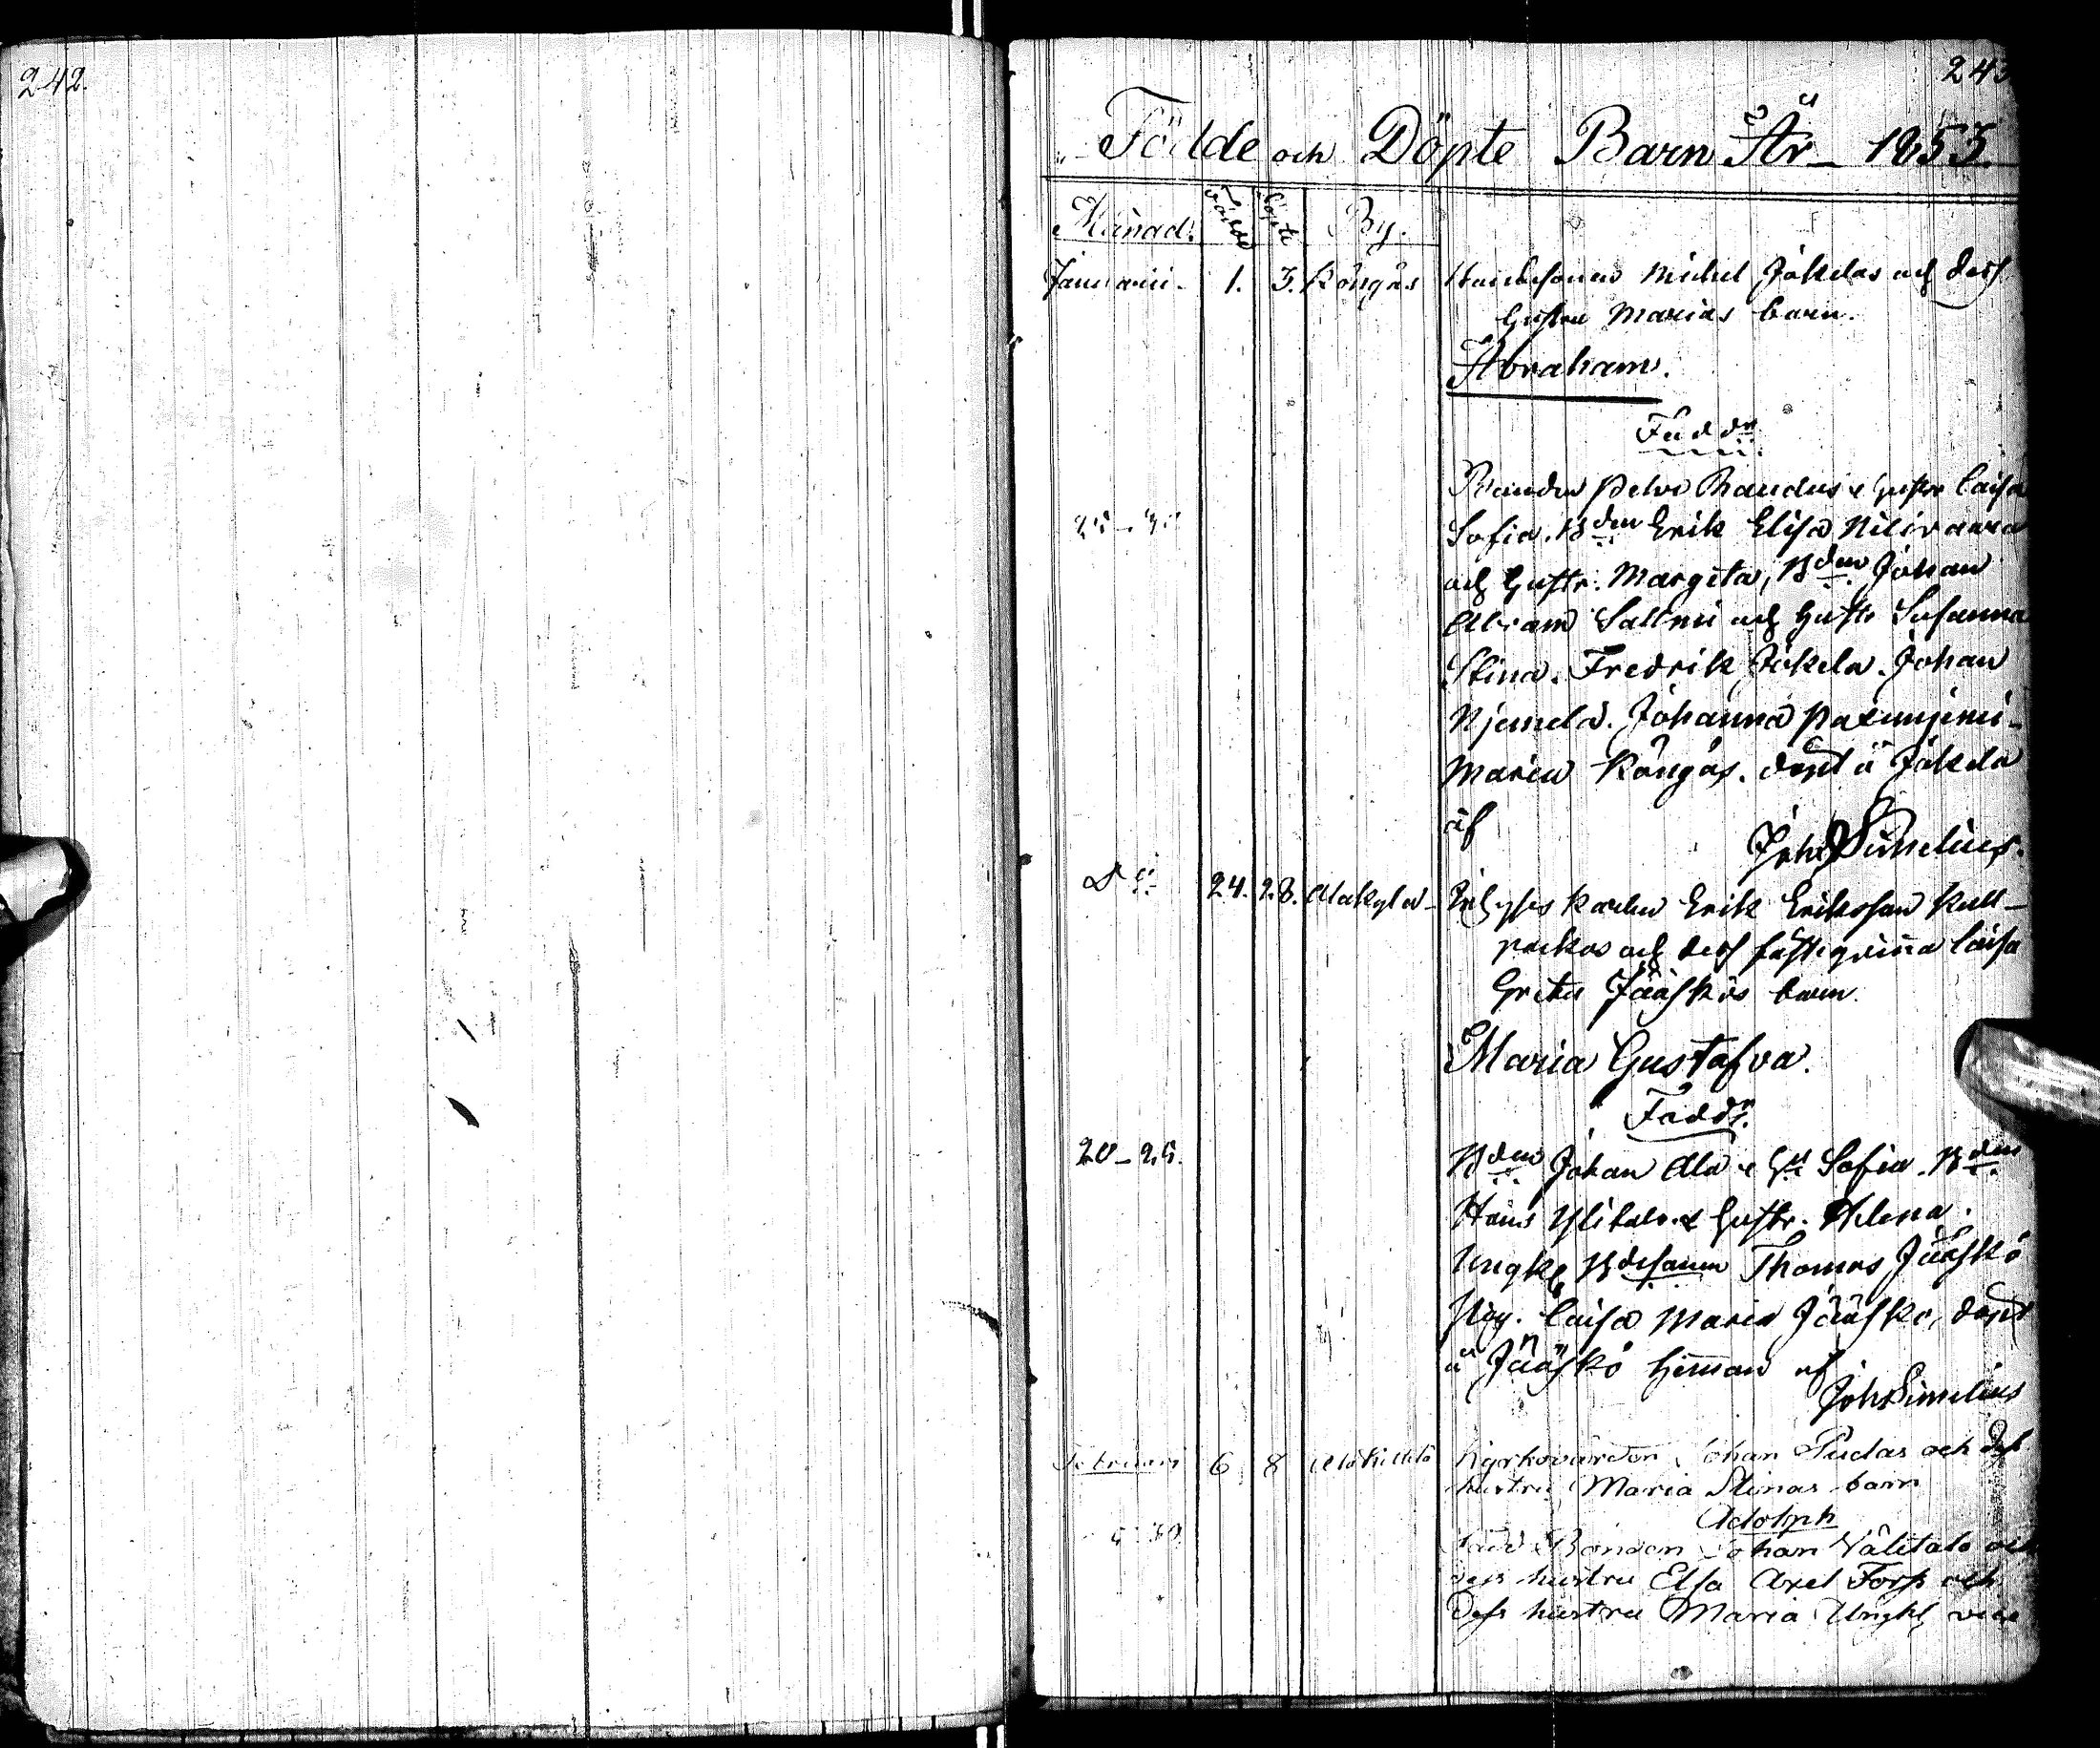 242.
243
Födde och Döpte Barn År - 1855.
Månad. Födde Döpte By.
Januarii. 1. 3. Köngäs Michel Jäkelas och dess
hustru Marias barn.
Abraham.
Faddr
Bonden Petrus & hustr Caisa
Sofia. Bden Erik Elisa Nilivaara
och hustr. Margeta, Bden Johan
Abram Salmi och hustr Susanna
Stina. Fredrik Jäkela. Johan
Njemelä. Johanna
Maria Köngäs. döpt å Jäkela
af
Joh Simelius.
Do 24. 28. Alakylä - Erik Eriksson Kull-
och dess fästeqvinna Caisa
Greta Jääskös barn.
Maria Gustafva.
Faddr.
20-25. Bden Johan Ala & Hu Sofia. Bden
Hans Ylitalo & hustr. Helena.
Ungk Bdesonen Thomas Jääskö
Pig. Caisa Maria Jääskö, döpt
å Jääskö hemman af
Joh Simelius
Februari 6 8 Alakittilä Kyrkovärden Johan Pudas och dess
hustru Maria Stinas barn
Adolph
Fadd Bonden Johan Välitalo och
dess hustru Elsa Axel Forss och
Dess hustru Maria Ungk